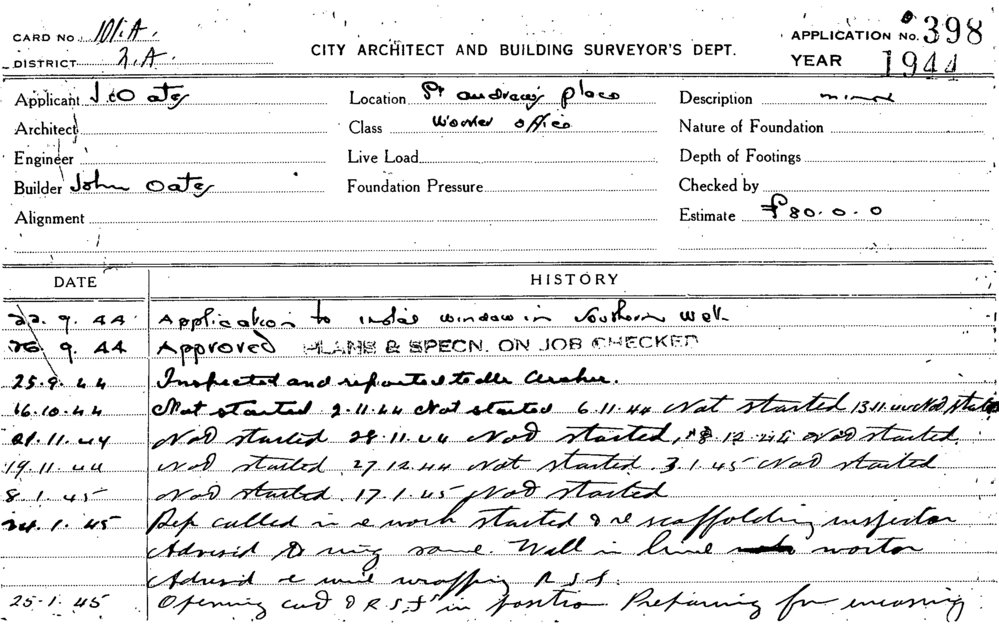 CARD No. 101.A.
APPLICATION No. 398
DISTRICT 2.A.
CITY ARCHITECT AND BUILDING SURVEYOR'S DEPT.
YEAR 1944
Applicant J. Oates Location St Andrews place Description minor
Architect Class Worker office Nature of Foundation
Engineer Live Load Depth of Footings
Builder John Oates Foundation Pressure Checked by
Alignment Estimate £80.0.0
DATE HISTORY
22.9.44 Application to instal window in Southern Wall
26.9.44 Approved PLANS & SPECN. ON JOB CHECKED
25.9.44 Inspected and reported to Mr Archer.
16.10.44 Not started 2.11.44 Not started 6.11.44 Not started 13.11.44 Not started
21.11.44 Not started 28.11.44 Not started, 12.44 Not started.
19.11.44 Not started. 27.12.44 Not started. 3.1.45 Not started
8.1.45 Not started. 17.1.45 Not started
24.1.45 Rep called in re work started & re scaffolding inspector
Advised to ring same. Wall in lime mortar
Advised re wire wrapping R.S.J.
25.1.45 Opening cut & R.S.J's in position Preparing for encasing